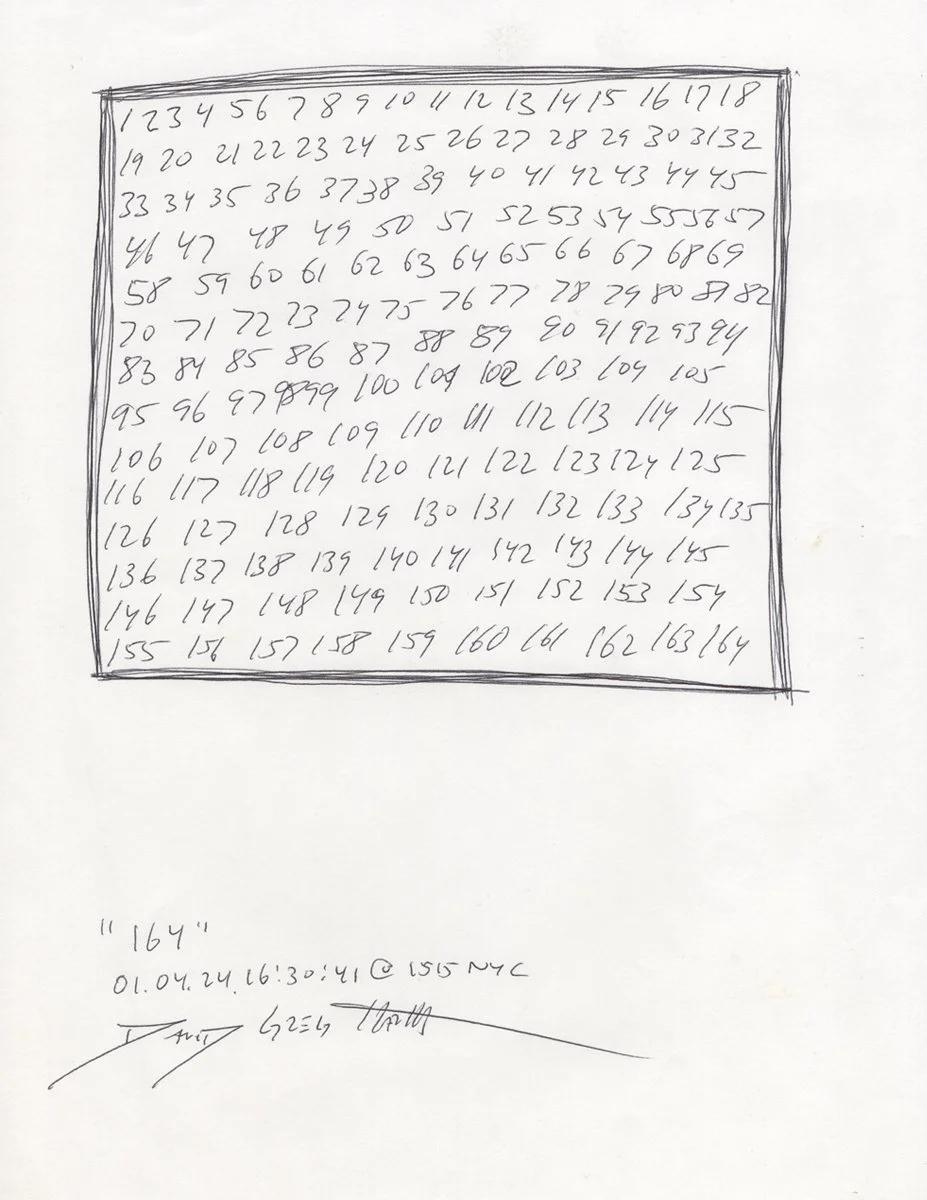 1 2 3 4 5 6 7 8 9 10 11 12 13 14 15 16 17 18
19 20 21 22 23 24 25 26 27 28 29 30 31 32
33 34 35 36 37 38 39 40 41 42 43 44 45
46 47 48 49 50 51 52 53 54 55 56 57
58 59 60 61 62 63 64 65 66 67 68 69
70 71 72 73 74 75 76 77 78 79 80 81 82
83 84 85 86 87 88 89 90 91 92 93 94
95 96 97 98 99 100 101 102 103 104 105
106 107 108 109 110 111 112 113 114 115
116 117 118 119 120 121 122 123 124 125
126 127 128 129 130 131 132 133 134 135
136 137 138 139 140 141 142 143 144 145
146 147 148 149 150 151 152 153 154
155 156 157 158 159 160 161 162 163 164
"164"
01.04.24.16:30:41 @ 1515 NYC
DAVID GREG